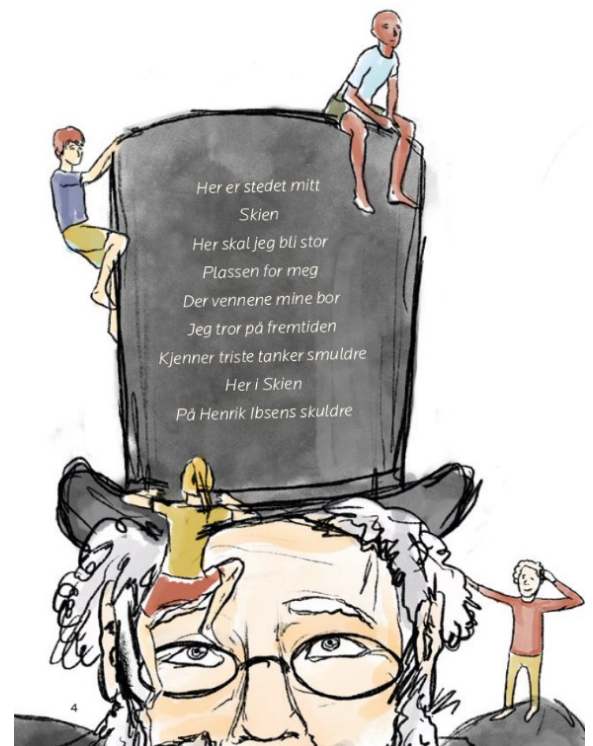 Her er stedet mitt
Skien
Her skal jeg bli stor
Plassen for meg
Der vennene mine bor
Jeg tror på fremtiden
Kjenner triste tanker smuldre
Her i Skien
På Henrik Ibsens skuldre
4